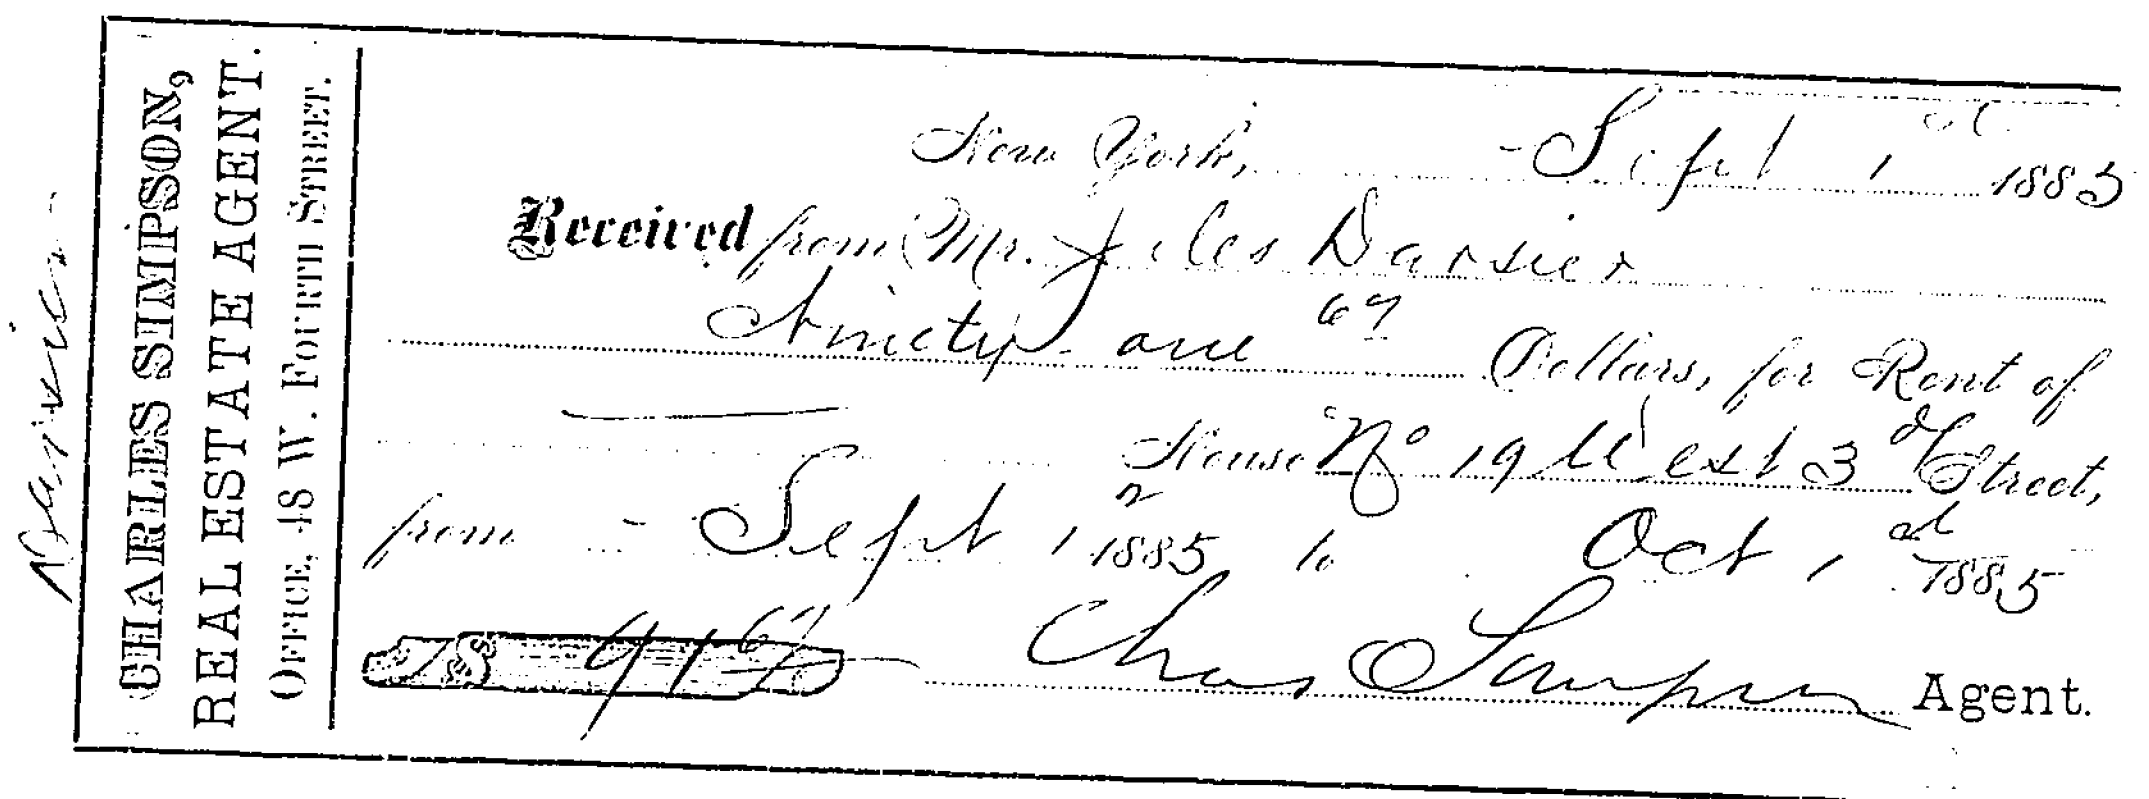 CHARLES SIMPSON,
REAL ESTATE AGENT.
OFFICE, 48 W. FOURTH STREET.
New York, Sept 1st 1885
Received from Mr. Jules Darsier
Ninety-one 67 Dollars, for Rent of
House No 19 West 3d Street,
from Sept 1 1885 to Oct 1st 1885
$ 91 67 Chas Simpson Agent.